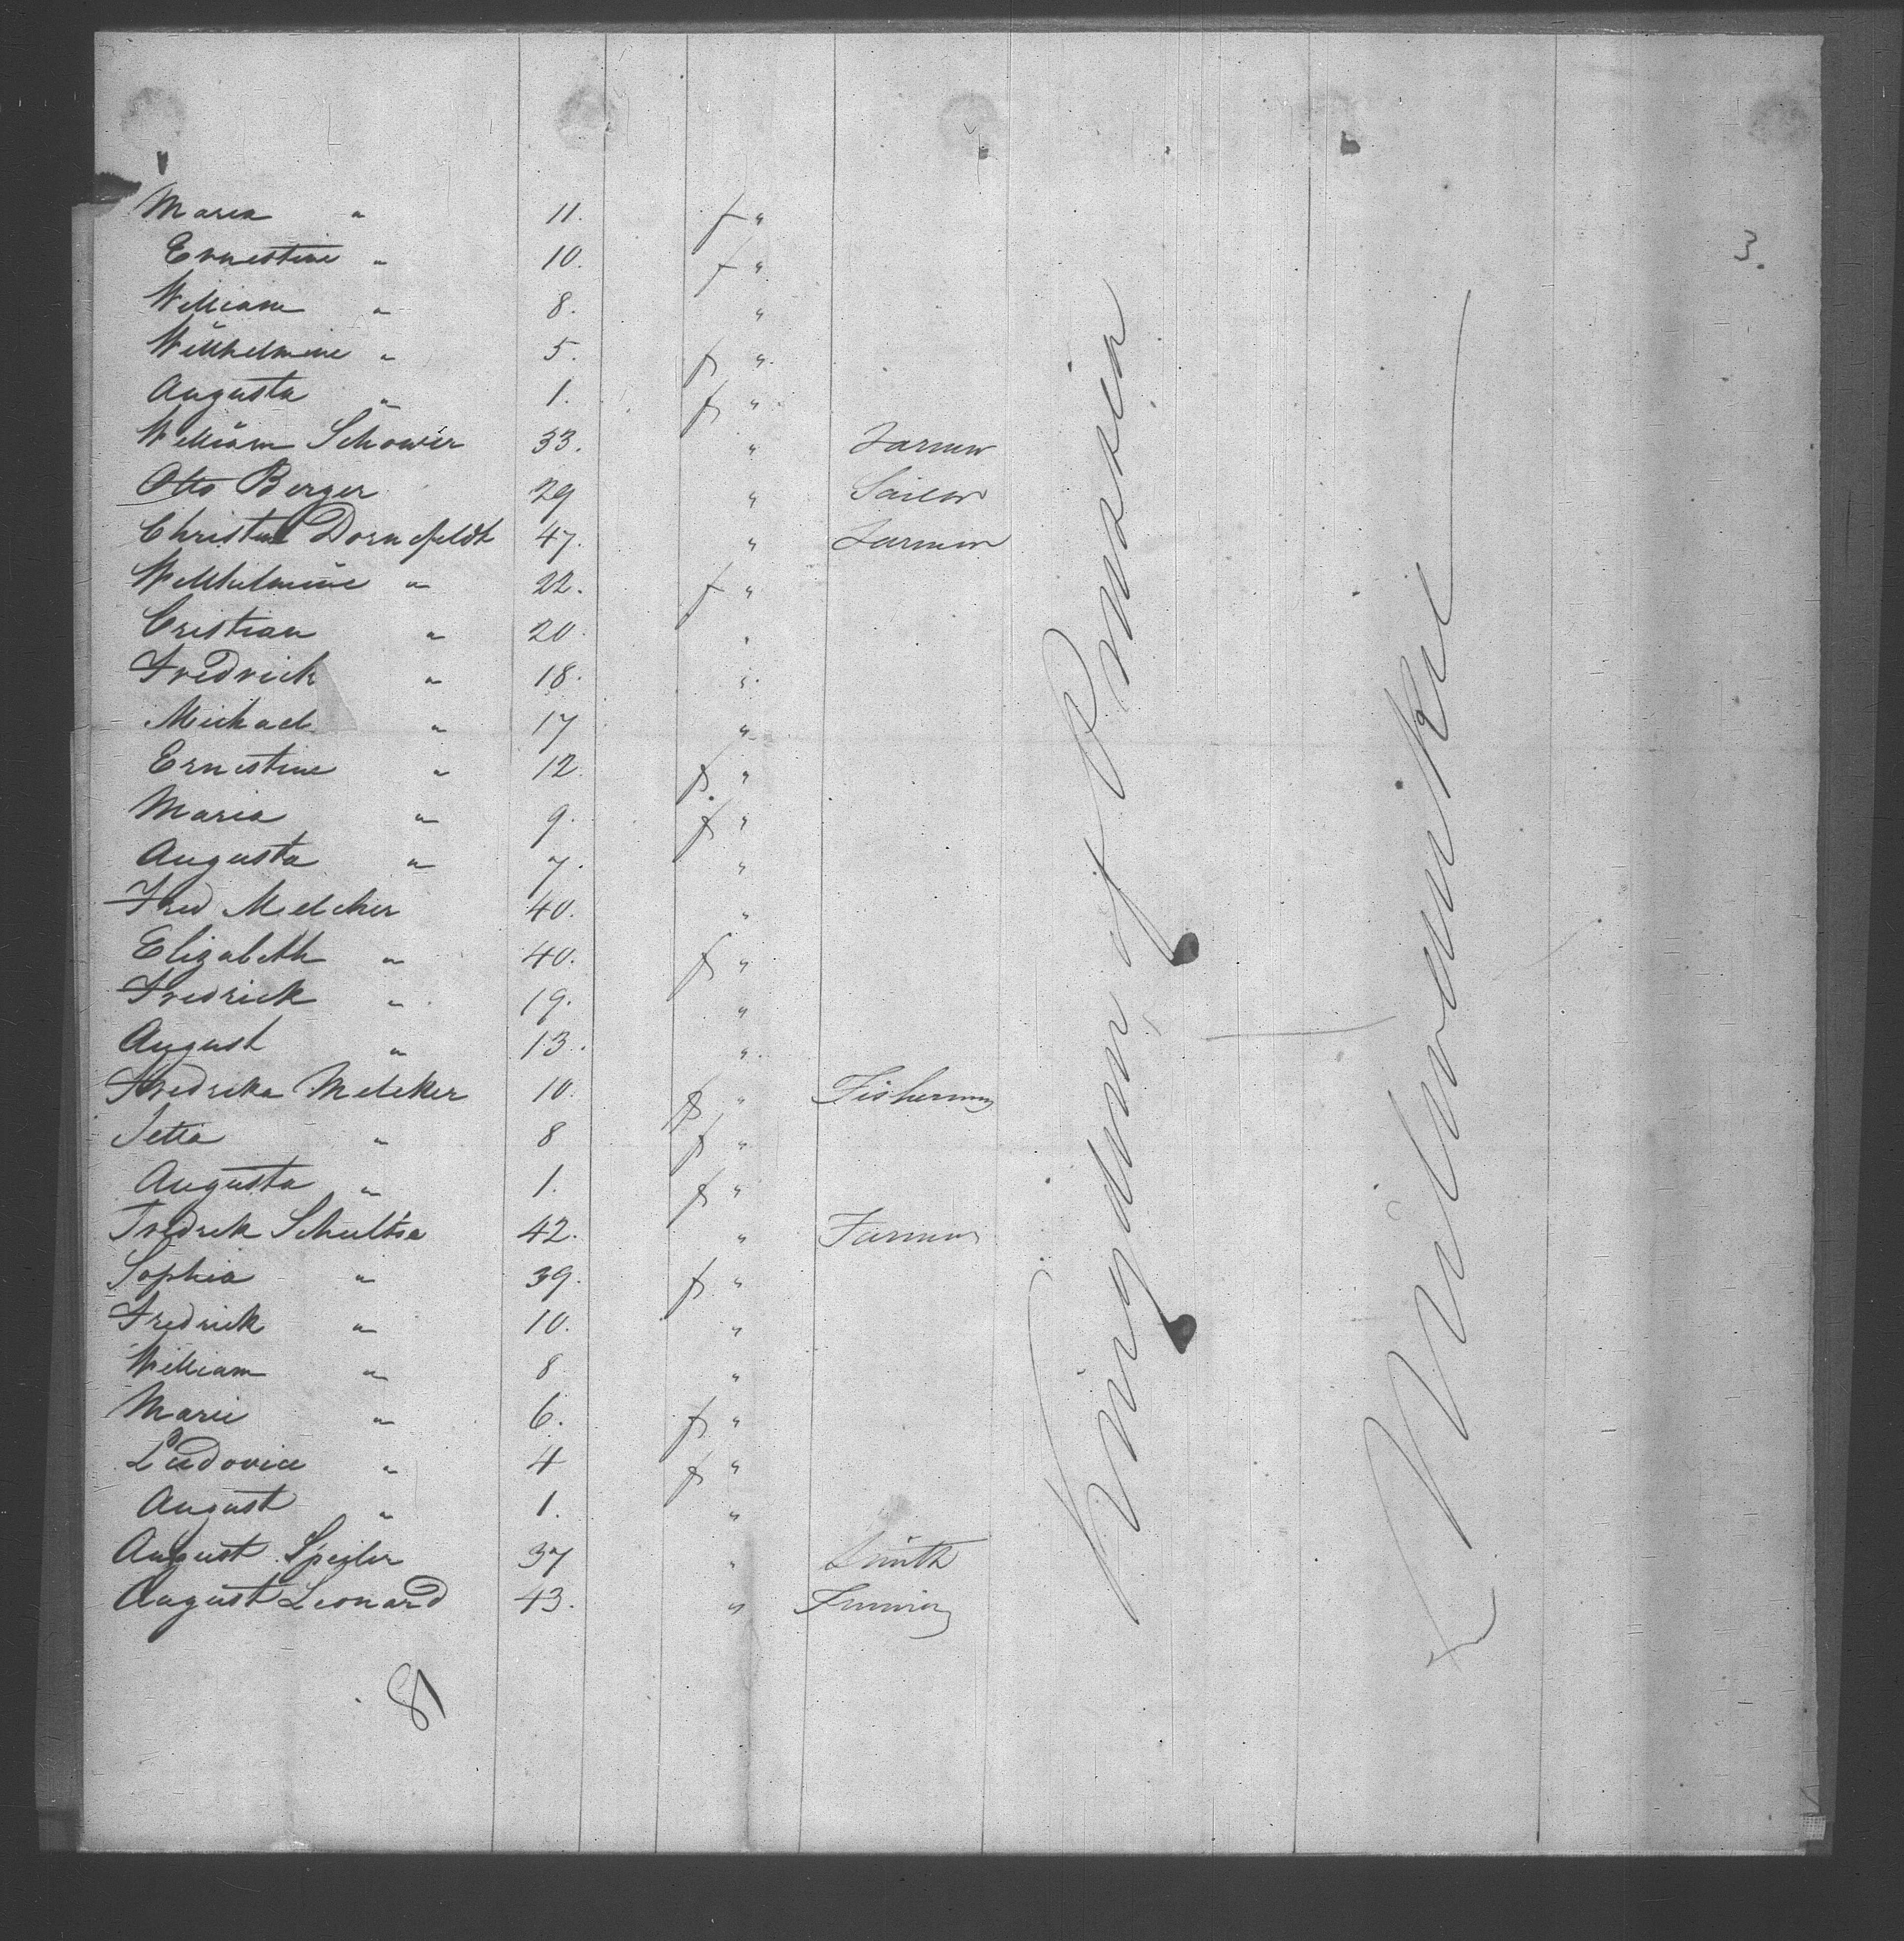 3.
Maria " 11. f "
Ernestine " 10. f "
William " 8. "
Willhelmine " 5. f "
Augusta " 1. f "
William Schower 33. " Farmer
Otto Berger 29 " Sailor
Christian Dornefeldt 47. " Farmer
Willhelmine " 22. f "
Cristian " 20. "
Fredrick " 18. "
Michael " 17 "
Ernestine " 12. f "
Maria " 9. f "
Augusta " 7. "
Fred Melcher 40. "
Elizabeth " 40. f "
Fredrick " 19. "
August " 13. "
Fredrika Melcker 10. f " Fisherman
Jetta " 8 f "
Augusta " 1. f "
Fredrik Schultse 42. " Farmer
Sophia " 39. f "
Fredrick " 10. "
William " 8 "
Marie " 6. f "
Ludovice " 4 f "
August " 1. "
August 37 " Smith
August Leonard 43. " Farmer
81
Kingdom of Prussia
Milwaukie